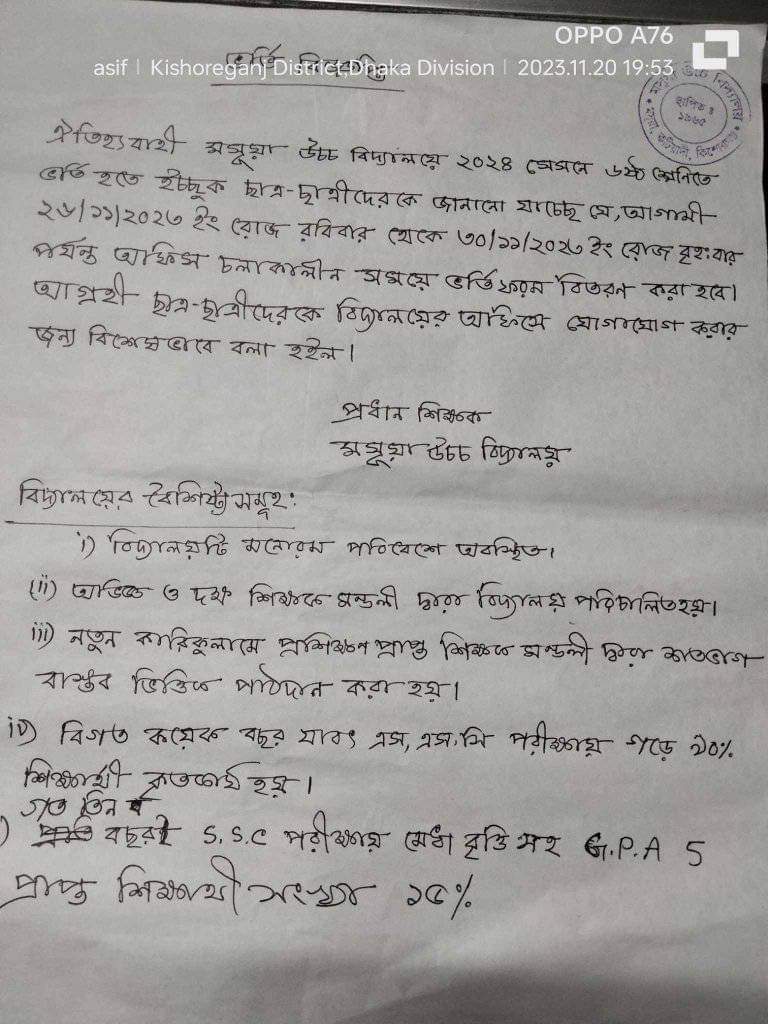 OPPO A76
asif | Kishoreganj District, Dhaka Division | 2023.11.20 19:53
ভর্তি বিজ্ঞপ্তি
ঐতিহ্যবাহী মসূয়া উচ্চ বিদ্যালয়ে ২০২৪ সেসনে ৬ষ্ঠ শ্রেনিতে
ভর্তি হতে ইচ্ছুক ছাত্র-ছাত্রীদেরকে জানানো যাচ্ছে যে, আগামী
২৬/১১/২০২৩ ইং রোজ রবিবার থেকে ৩০/১১/২০২৩ ইং রোজ বৃহ:বার
পর্যন্ত অফিস চলাকালীন সময়ে ভর্তি ফরম বিতরন করা হবে।
আগ্রহী ছাত্র-ছাত্রীদেরকে বিদ্যালয়ের অফিসে যোগাযোগ করার
জন্য বিশেষভাবে বলা হইল।
প্রধান শিক্ষক
মসূয়া উচ্চ বিদ্যালয়
বিদ্যালয়ের বৈশিষ্ট্য সমূহ:
i) বিদ্যালয়টি মনোরম পরিবেশে অবস্থিত।
(ii) অভিজ্ঞ ও দক্ষ শিক্ষক মন্ডলী দ্বারা বিদ্যালয় পরিচালিত হয়।
iii) নতুন কারিকুলামে প্রশিক্ষণ প্রাপ্ত শিক্ষক মন্ডলী দ্বারা শতভাগ
বাস্তব ভিত্তিক পাঠদান করা হয়।
iv) বিগত কয়েক বছর যাবৎ এস,এস,সি পরীক্ষায় গড়ে ৯০%
শিক্ষার্থী কৃতকার্য হয়।
গত তিন
) বছর S.S.C পরীক্ষায় মেধা বৃত্তি সহ G.P.A 5
প্রাপ্ত শিক্ষার্থী সংখ্যা ১৫%